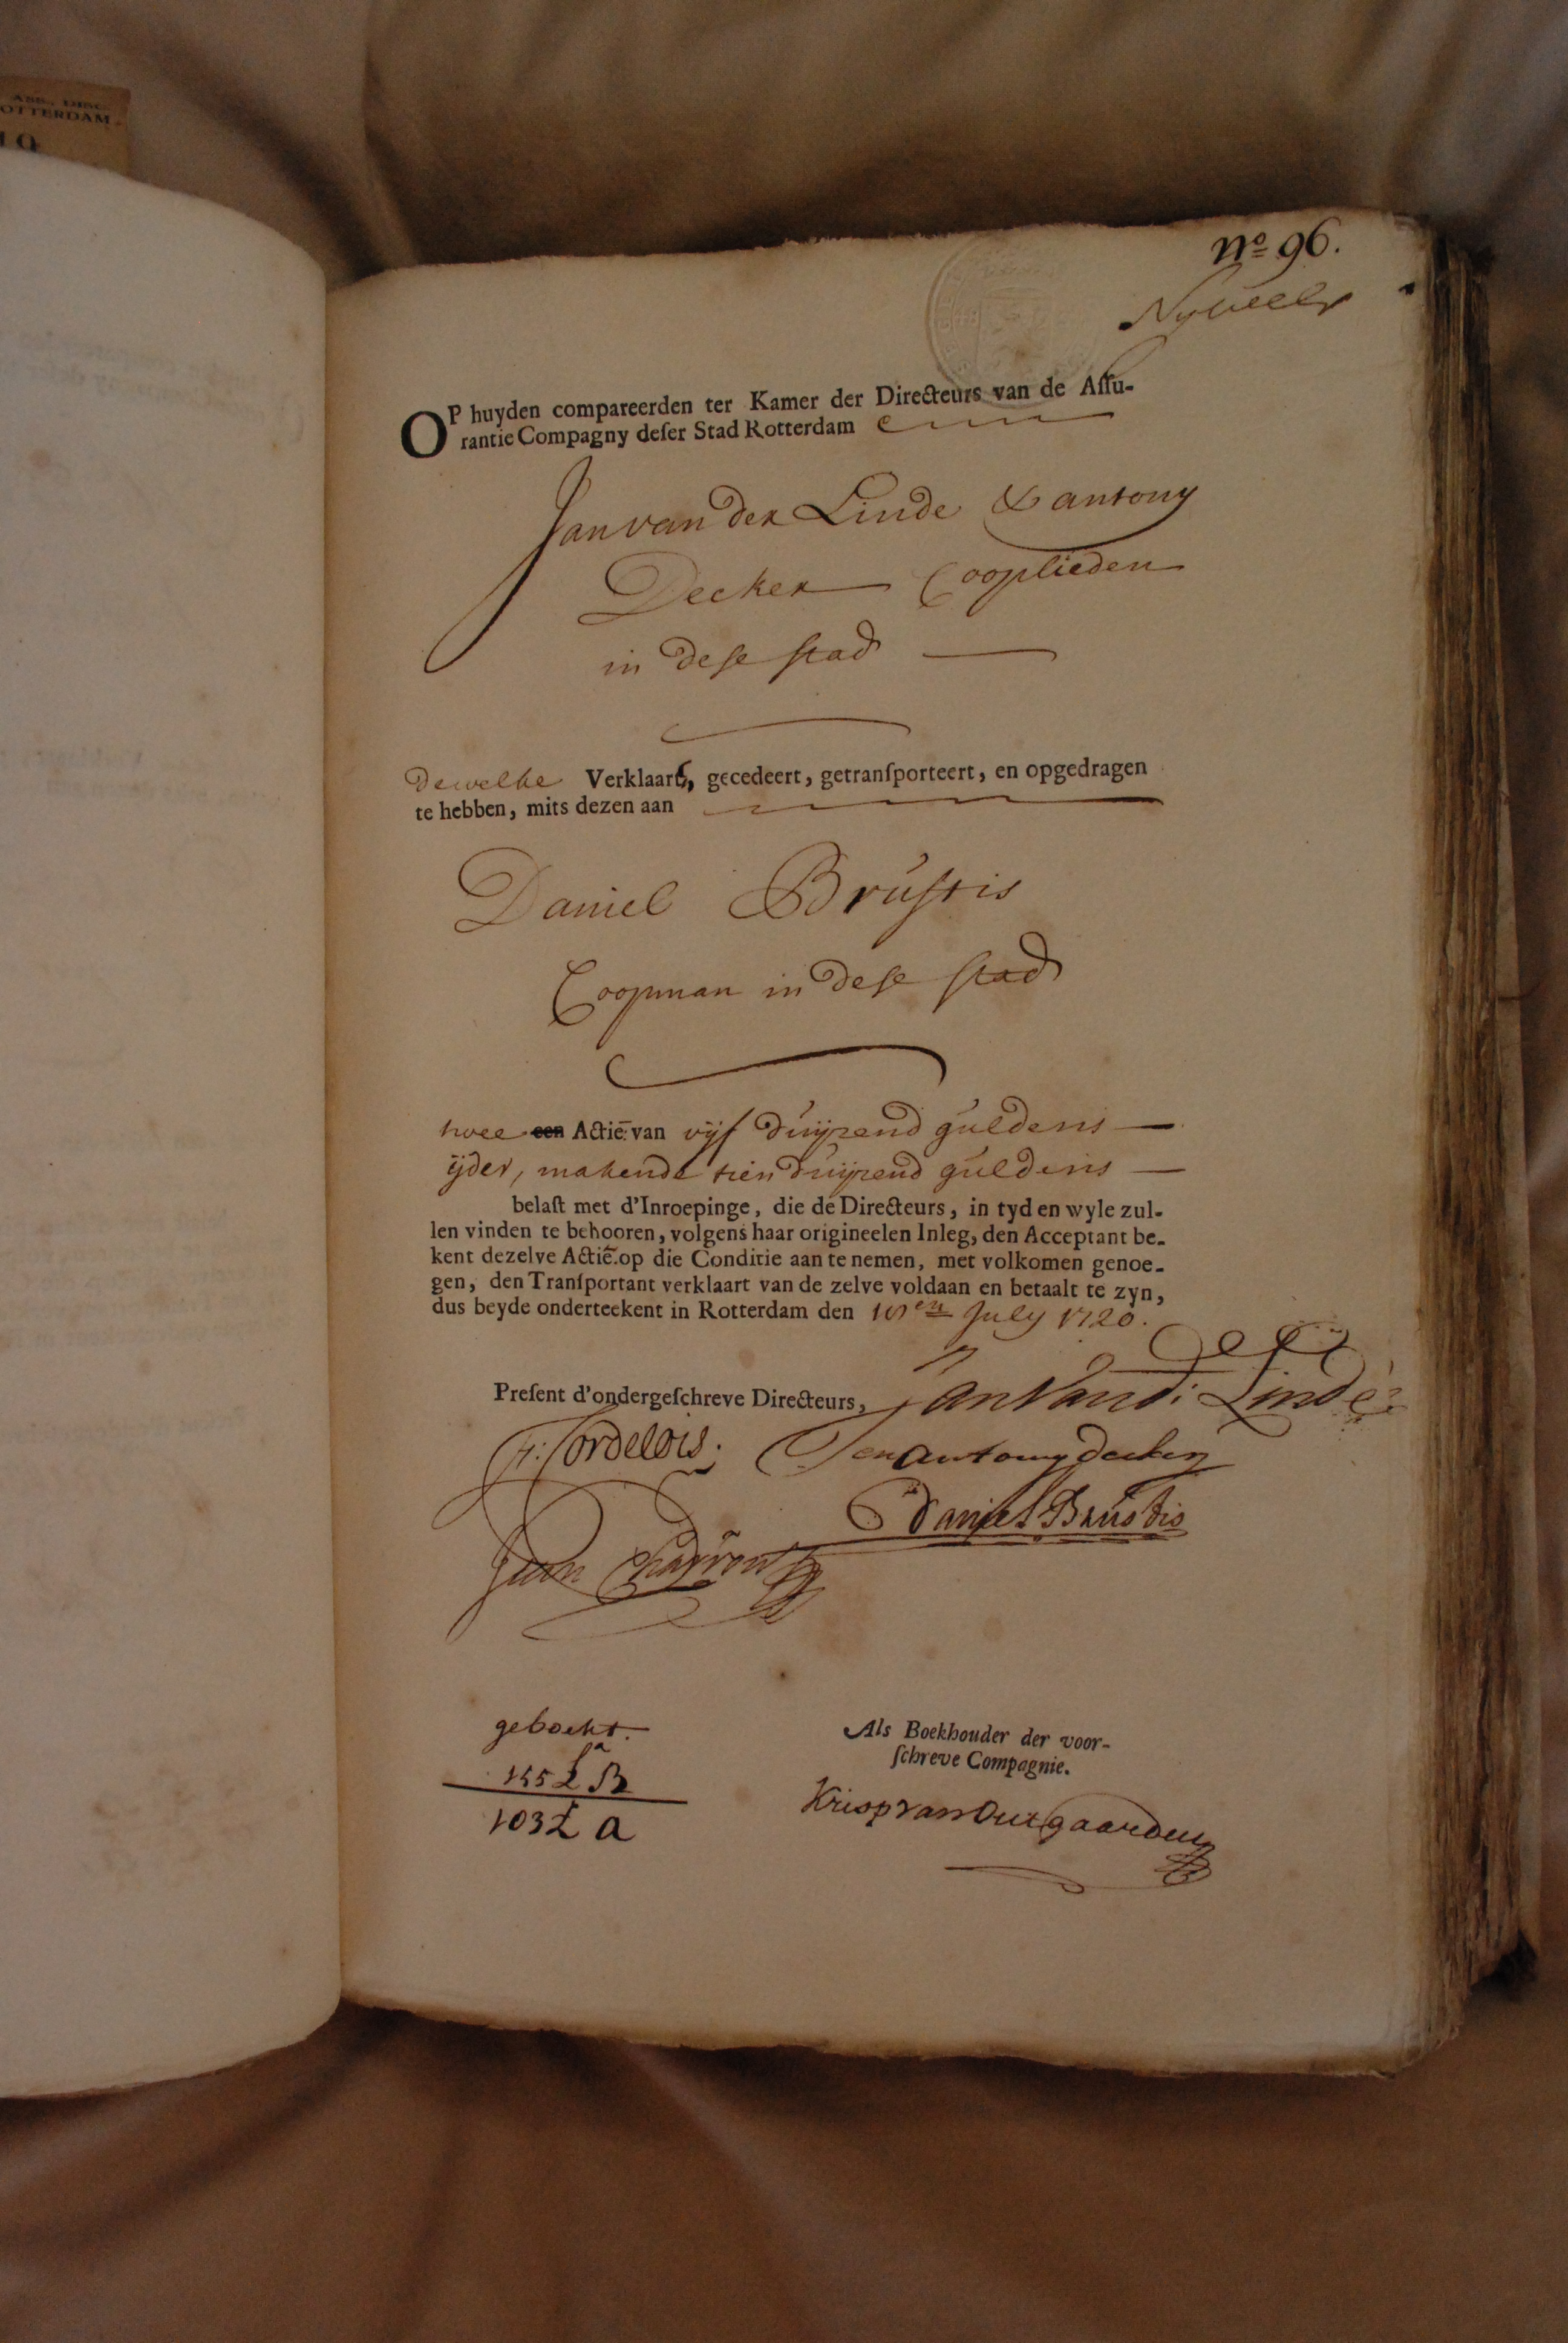 ASS., DISC.
OTTERDAM.
10
No 96.
OP huyden compareerden ter Kamer der Directeurs van de Assu-
rantie Compagny deser Stad Rotterdam
Jan van der Linde & antony
Decker Cooplieden
in dese stad
dewelke Verklaart, gecedeert, getransporteert, en opgedragen
te hebben, mits dezen aan
Daniel Brustis
Coopman in dese stad
twee een Actiē van vijf duijzend guldens
ijder, makende tien duijzend guldens
belast met d'Inroepinge, die de Directeurs, in tyd en wyle zul-
len vinden te behooren, volgens haar origineelen Inleg, den Acceptant be-
kent dezelve Actiē op die Conditie aan te nemen, met volkomen genoe-
gen, den Transportant verklaart van de zelve voldaan en betaalt te zyn,
dus beyde onderteekent in Rotterdam den July 1720.
Present d'ondergeschreve Directeurs, Jan Vand: Linde
H: Cordelois. en antony decker
Daniel Brustis
Jean Charron
geboekt.
155 £ B
103 £ a
Als Boekhouder der voor-
schreve Compagnie.
Krisp van Outgaarden